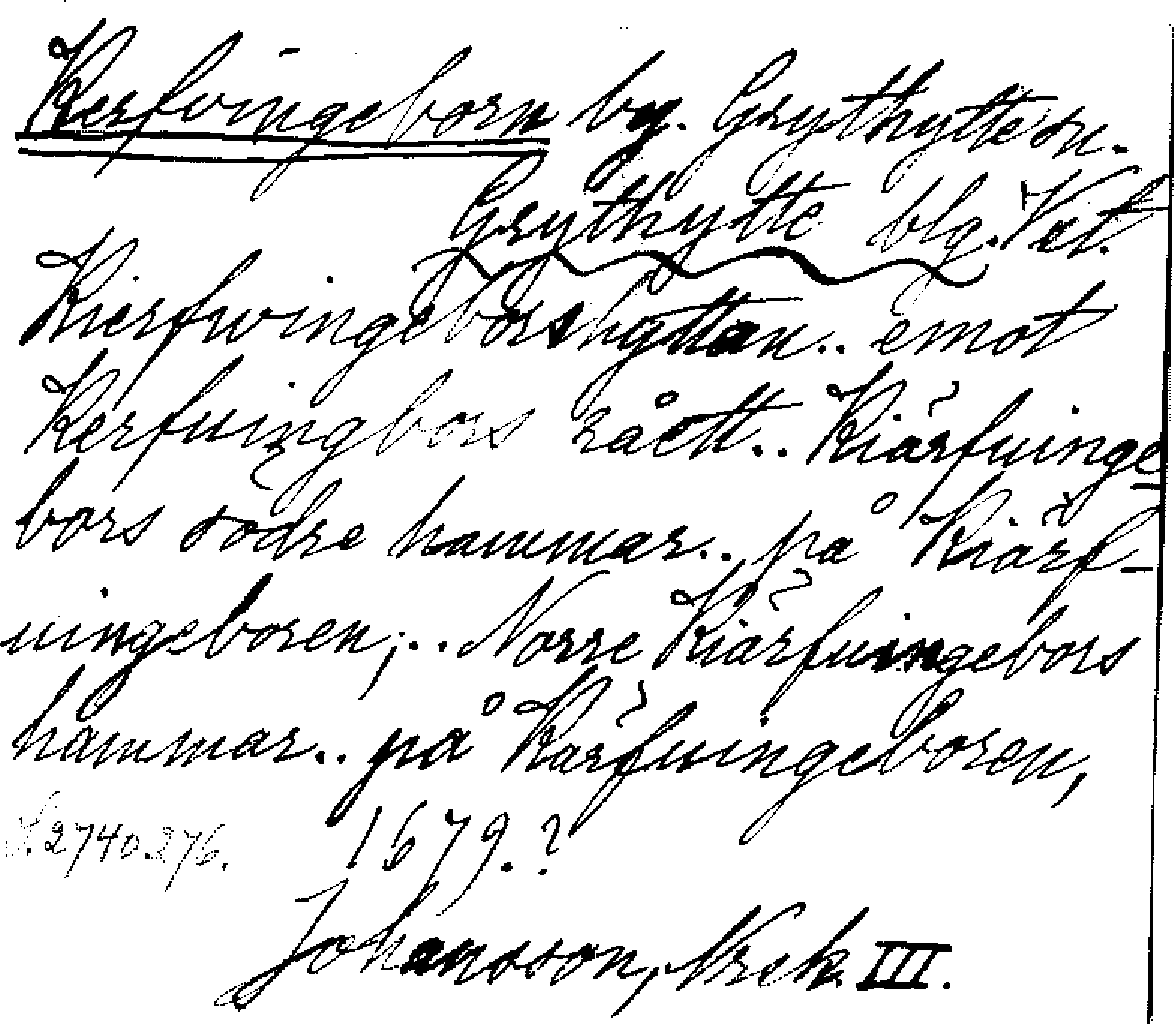 Kerfvingeborn bg. Grythytte sn.
Grythytte blg. Väst.
Kierfwingeborshyttan.. emot
Kerfuingbors råått.. Kiärfuinge
bors södre hammar.. på Kiärf-
uingeboren;.. Norre Kiärfuingebors
hammar.. på Kärfuingeboren,
1679.?
2740.276.
Johansson, Nrck III.